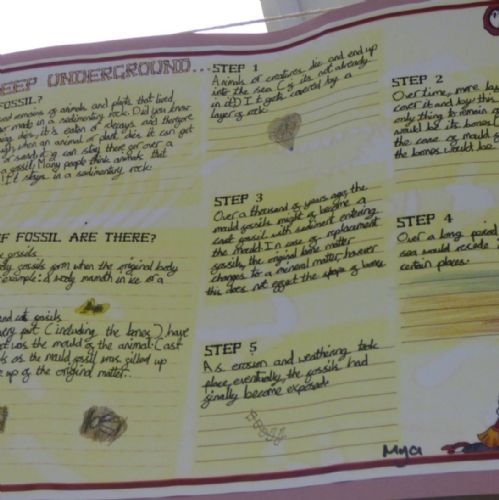 EEP UNDERGROUND...
FOSSIL?
and remains of animals and plants that lived,
or made in a sedimentary rock. Did you know
dies, it's eaten or decays and therefore
when an animal or plant dies it can get
or sand it can stay there for over a
a fossil. Many people think animals that
It stays in a sedimentary rock.
F FOSSIL ARE THERE?
fossils
body fossils form when the original body
example: a wooly mamoth in ice or a
and cast fossils
every part (including the bones) have
left was the mould of the animal. Cast
as the mould fossil was filled up
up of the original matter.
STEP 1
Animals or creatures die and end up
into the sea (if its not already
in it). It gets covered by a
layer of rock.
STEP 3
Over a thousand of years ago, the
mould fossils might of become a
cast fossil with sediment entering
the mould. In case of replacement
fossils, the original bone matter
changes to a mineral matter, however
this does not effect the shape of bones.
STEP 5
As erosion and weathering took
place, eventually, the fossils had
finally become exposed.
STEP 2
Over time, more lay
cover it and by this
only thing to remain o
would be its bones!
the case of mould fo
the bones would be
STEP 4
Over a long period
sea would recede
certain places.
Mya